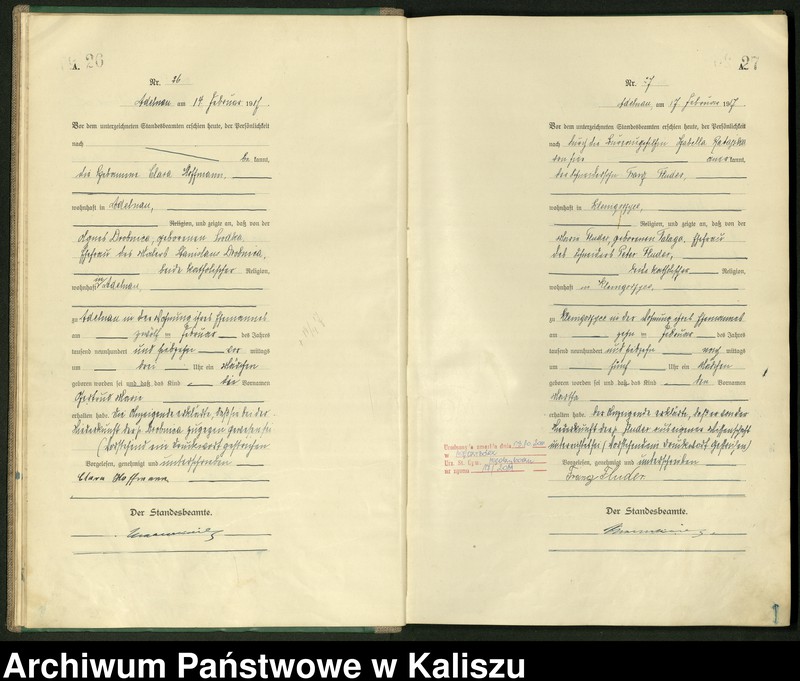 A. 26
Nr. 26
Adelnau, am 14 Februar 1917.
Vor dem unterzeichneten Standesbeamten erschien heute, der Persönlichkeit
nach
be kannt,
die Hebamme Clara Hoffmann,
wohnhaft in Adelnau,
Religion, und zeigte an, daß von der
Agnes Drobnica, geborenen
Ehefrau des Malers Stanislaus Drobnica,
beide katholischer Religion,
wohnhaft in Adelnau,
zu Adelnau in der Wohnung ihres Ehemannes
am zwölf ten Februar des Jahres
tausend neunhundert und siebzehn vor mittags
um drei Uhr ein Mädchen
geboren worden sei und daß das Kind die Vornamen
Gertrud Maria
erhalten habe. Die Anzeigende erklärte, daß sie bei der
Niederkunft der p. Drobnica zugegen gewesen sei
(Vorstehend ein Druckwort gestrichen
Vorgelesen, genehmigt und unterschrieben
Clara Hoffmann
Der Standesbeamte.
A. 27
Nr. 27
Adelnau, am 17 Februar 1917.
Vor dem unterzeichneten Standesbeamten erschien heute, der Persönlichkeit
nach durch die Isabella
aner kannt,
Franz Fluder,
wohnhaft in
Religion, und zeigte an, daß von der
Maria Fluder, geborenen Palaga, Ehefrau
des Schneiders Peter Fluder,
beide katholischer Religion,
wohnhaft in
zu in der Wohnung ihres Ehemannes
am zehn ten Februar des Jahres
tausend neunhundert und siebzehn nach mittags
um fünf Uhr ein Mädchen
geboren worden sei und daß das Kind den Vornamen
Martha
erhalten habe. Der Anzeigende erklärte, daß er von der
Niederkunft der p. Fluder aus eigener Wissenschaft
unterrichtet sei (Vorstehendem Druckwort Gestrichen)
Vorgelesen, genehmigt und unterschrieben
Franz Fluder
Der Standesbeamte.
w
Archiwum Państwowe w Kaliszu